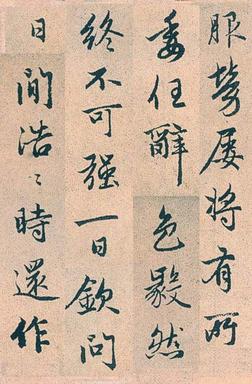 服勞屢將有所
委任辭色毅然
終不可强一日欽問
日間浩々時還作